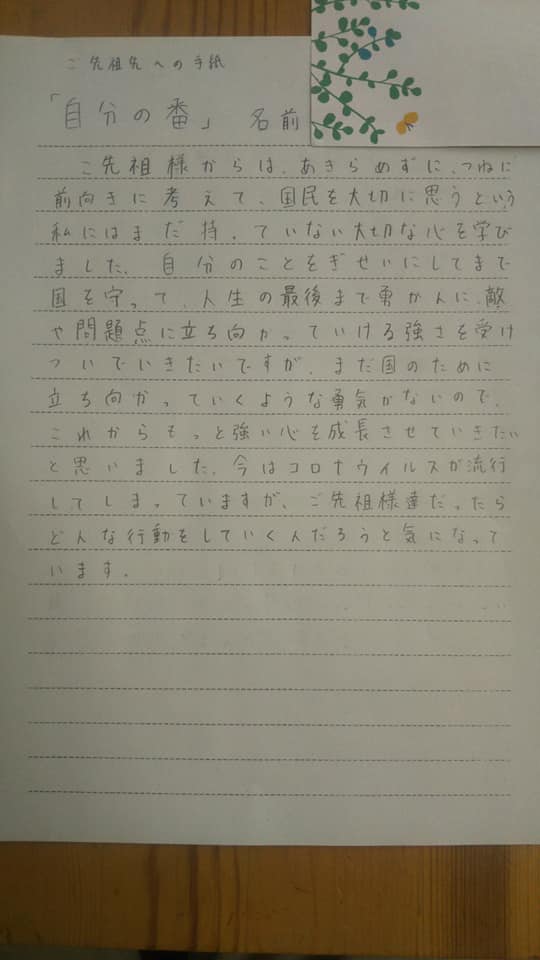 ご先祖先への手紙
「自分の番」 名前
ご先祖様からは、あきらめずに、つねに
前向きに考えて、国民を大切に思うという
私にはまだ持っていない大切な心を学び
ました。自分のことをぎせいにしてまで
国を守って、人生の最後まで勇かんに、敵
や問題点に立ち向かっていける強さを受け
ついでいきたいですが、まだ国のために
立ち向かっていくような勇気がないので、
これからもっと強い心を成長させていきたい
と思いました。今はコロナウイルスが流行
してしまっていますが、ご先祖様達だったら
どんな行動をしていく人だろうと気になって
います。